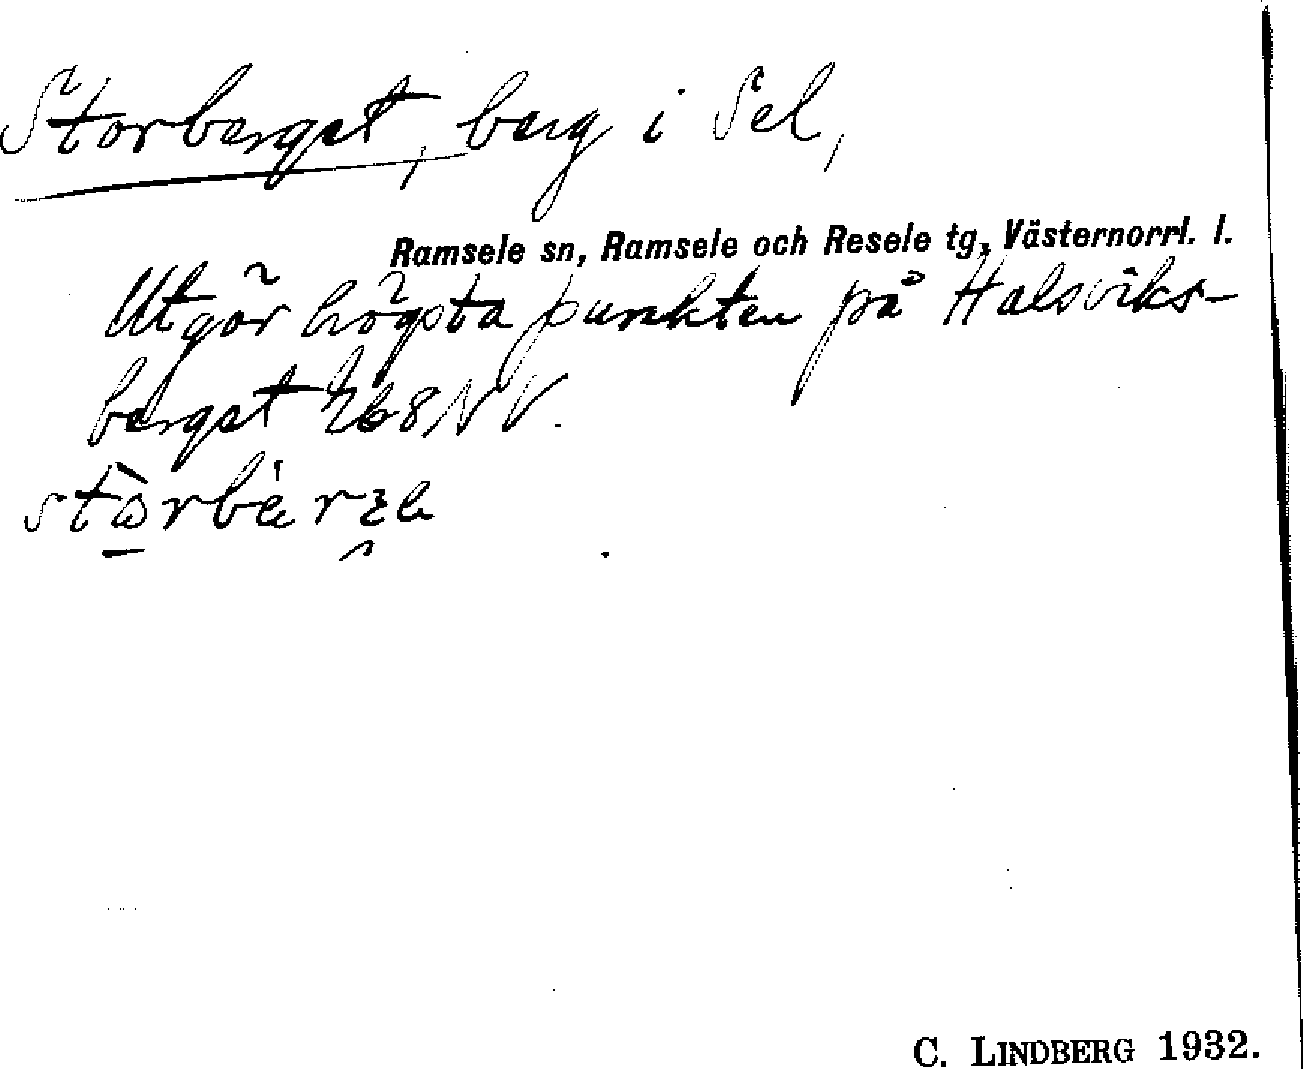 Storberget, berg i Sel,
Ramsele sn, Ramsele och Resele tg, Västernorrl. l.
Utgör högsta punkten på Halsviks-
berget 268 NV.
C. LINDBERG 1932.